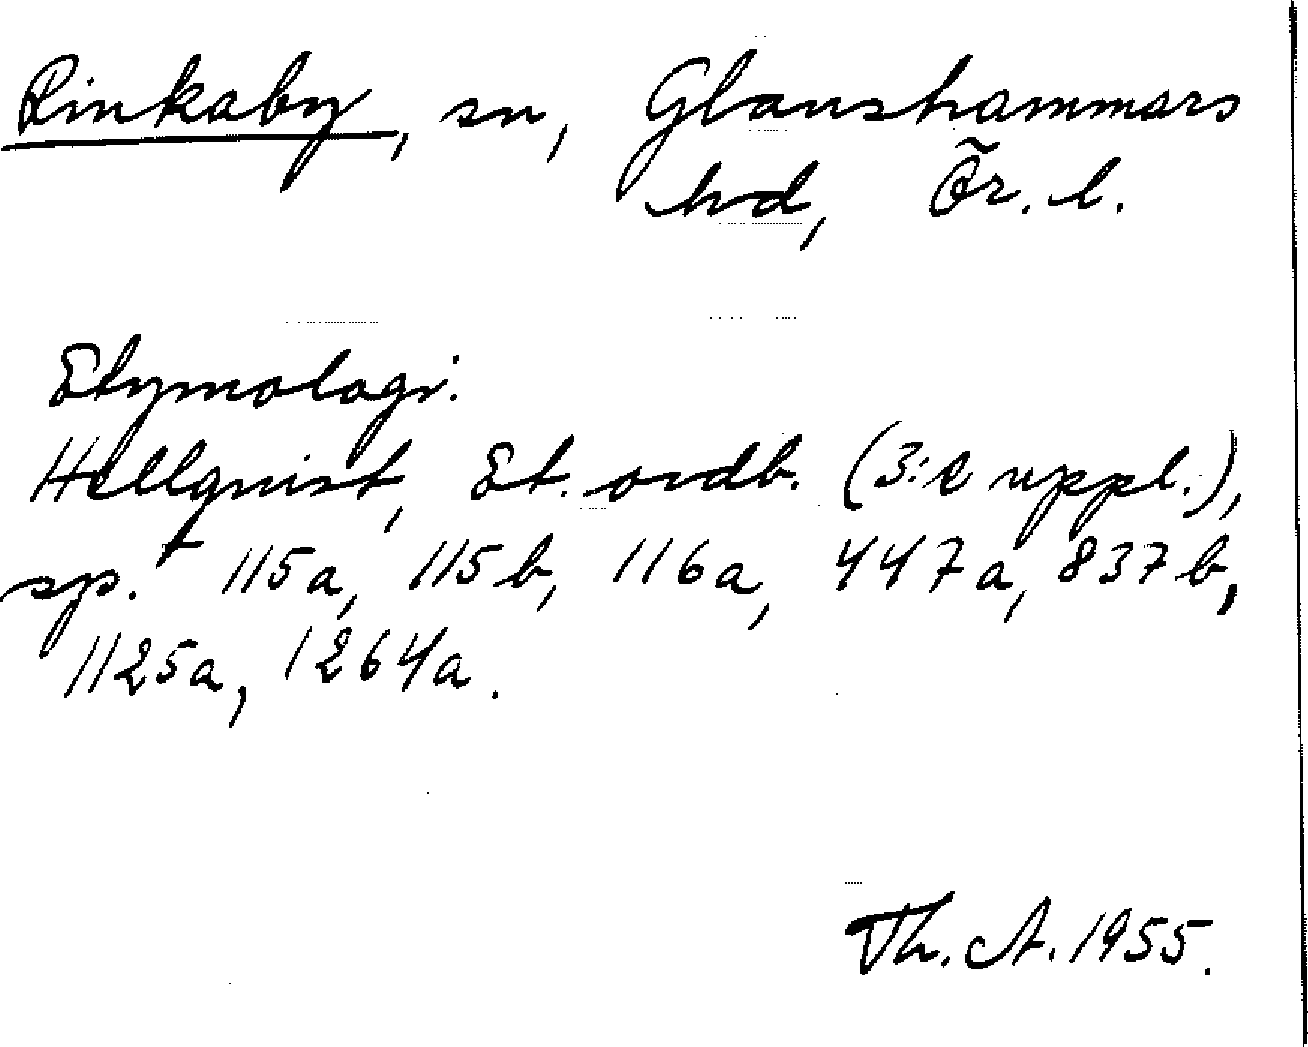 Rinkaby, sn, Glanshammars
hd, Ör. l.
Etymologi.
Hellquist, Et. ordb. (3:e uppl.),
sp. 115a, 115b, 116a, 447a, 837b,
1125a, 1264a.
Th. A. 1955.